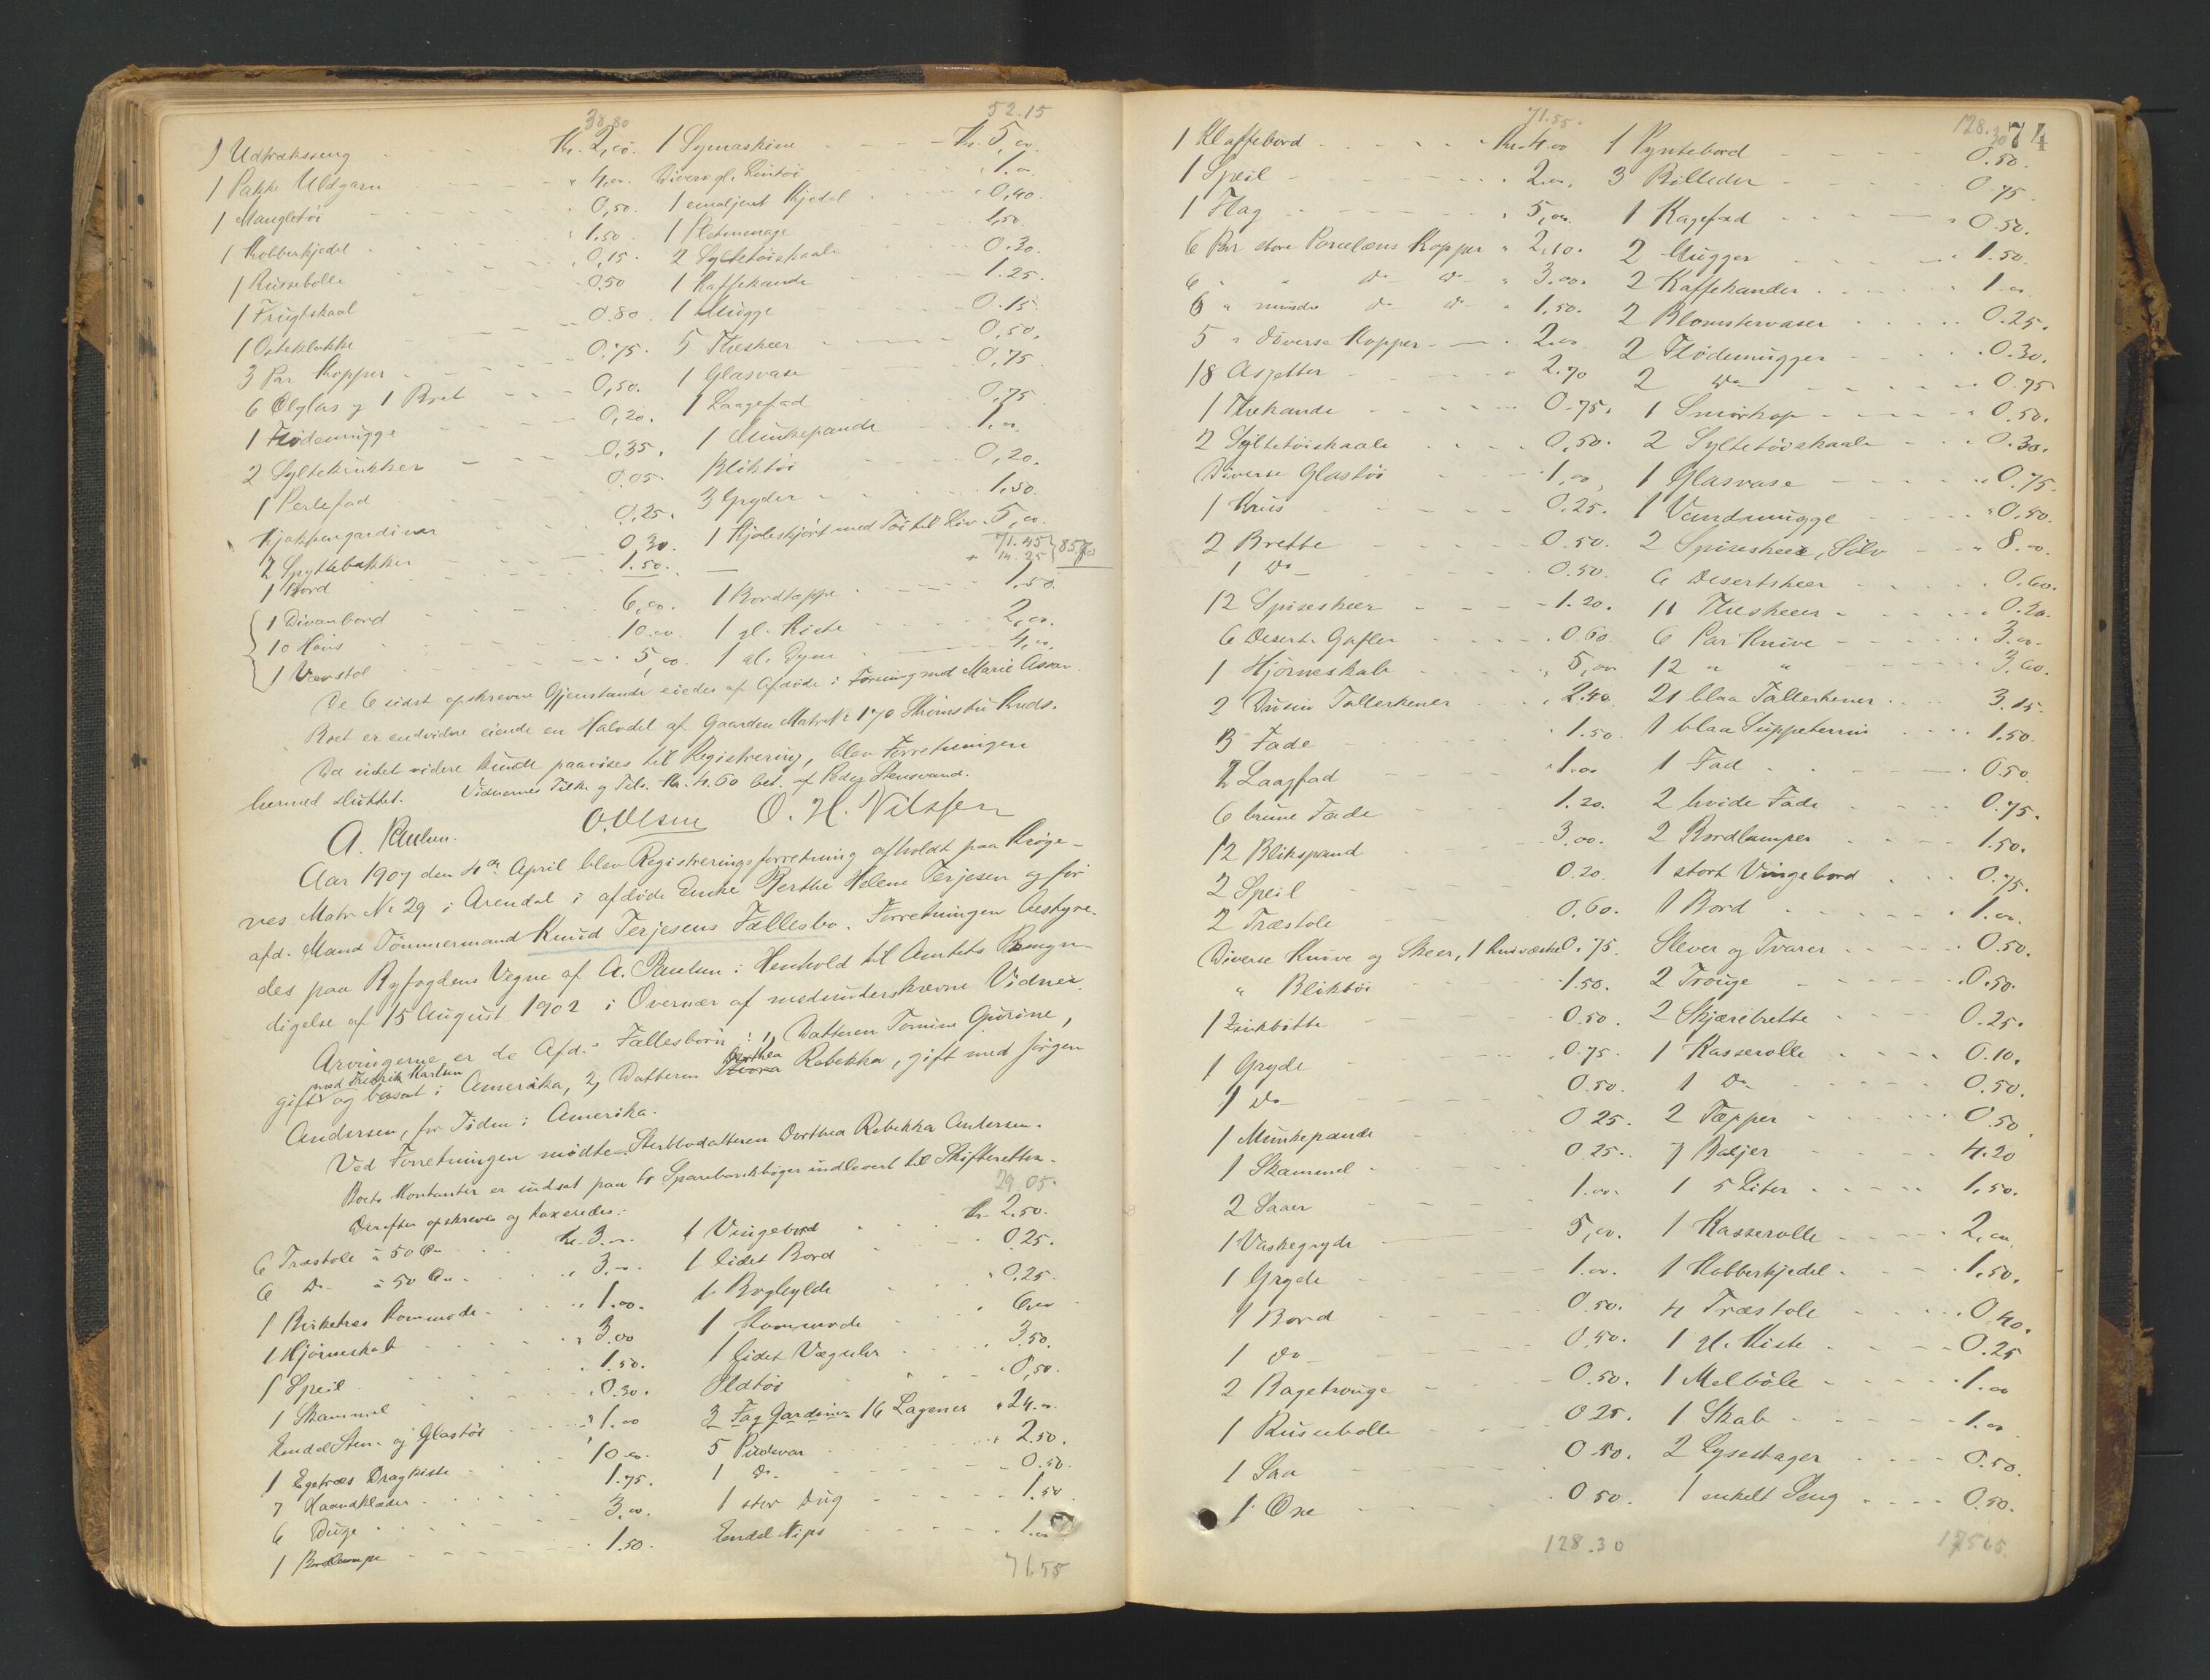 38.80
52.15
1 Udtrækseng Kr. 2,00. 1 Symaskine Kr. 5,00.
1 Pakke Uldgarn " 4,00. Diverse gl. Lintøi 1.00
1 Mangletøi 0,50. 1 emaljeret Kjedel 0,40.
1 Kobberkjedel 1.50. 1 Platmenage 1,50
1 Punsebolle 0,15. 2 Syltetøiskaale 0.30.
1 Frugtskaal 0,50 1 Kaffekande 1.25.
1 Osteklokke 0.80. 1 Mugge 0.15
3 Par Kopper 0.75. 5 Theskeer 0,50,
6 Ølglas og 1 Bret 0,50. 1 Glasvase 0,75
1 Flødemugge 0,20. 1 Laagefad 0,75
2 Syltekrukker 0,35. 1 Munkepande 1,00
1 Perlefad 0.05 Bliktøi 0,20.
Kjøkkengardiner 0,25. 3 Gryder 1,50.
2 Spyttebakker 0,30. 1 Kjoleskjørt med Tøi til Liv 5,00.
1 Bord 1.50. 71.45
+ 14.25 85.70
1 Divanbord 6,00. 1 Bordtæppe 1.50.
10 Høns 10.00. 1 gl. Kiste 2,00.
1 Vævstol 5,00. 1 gl. Dyne 4,00
De 6 sidst opskrevne Gjenstande eiedes af Afdøde i Forening med Marie Aasen.
Boet er endvidere eiende en Halvdel af Gaarden Matr. Nr. 170
Da intet videre kunde paavises til Registrering, blev Forretningen
hermed sluttet. Vidnernes Tilk. og Tils. Kr. 4.60 bet. af Peder Stensvand.
A. Paulsen. O. Olsen O. H. Nilssen
Aar 1907 den 4de April blev Registreringsforretning afholdt paa Krøge-
nes Matr. Nr. 29 i Arendal i afdøde Enke Berthe Helene Terjesen og før
afd. Mand Tømmermand Knud Terjesens Fællesbo. Forretningen bestyre-
des paa Byfogdens Vegne af A. Paulsen i Henhold til Amtets Bemyn-
digelse af 15 August 1902 i Overvær af medunderskrevne Vidner.
Arvingerne er de Afd.s Fællesbørn: 1, Datteren Tomine Gurine,
med Fredrik Karlsen
gift og bosat i Amerika, 2, Datteren Dorthea Rebekka, gift med Jørgen
Andersen, for Tiden i Amerika.
Ved Forretningen mødte Sterbbodatteren Dorthea Rebekka Andersen.
Boets Kontanter er indsat paa 4 Sparebankbøger indleveret til Skifteretten.
29.05.
Derefter opskreves og taxeredes:
6 Træstole à 50 Øre Kr. 3.00. 1 Vingebord Kr. 2.50.
6 Do à 50 Øre " 3,00. 1 lidet Bord 0.25.
1 Birketræs Kommode 1.00. 1 Boghylde 0,25.
1 Hjørneskab 3.00 1 Kommode 6,00
1 Speil 1.50. 1 lidet Væguhr 3.50.
1 Skammel 0.30. Uldtøi 0,50.
Endel Sten- og Glastøi 1.00 3 Fag Gardiner 16 Lagener 24.00.
1 Egetræs Dragkiste 10.00. 5 Pudevar 2.50.
7 Haandklæder 1.75. 1 Do. 0.50.
6 Duge 3,00. 1 stor Dug 1.50
1 Bordlampe 1.50. Endel Nips 1.00
71.55
71.55.
128.30 74
1 Klaffebord Kr. 4.00 1 Pyntebord 0.50.
1 Speil 2.00. 3 Billeder 0.75
1 Flag 5,00. 1 Kagefad 0.50.
6 Par store Porcelæns Kopper " 2.10. 2 Mugger 1.50.
6 " " do do " 3.00. 2 Kaffekander 1.00
6 " mindre do do " 1,50. 2 Blomstervaser 0.25.
5 " diverse Kopper 2.00 2 Flødemugger 0.30.
18 Asjetter 2.70 2 Do 0.75
1 Thekande 0.75. 1 Smørkop 0.50.
2 Syltetøiskaale 0,50. 2 Syltetøiskaale 0.30.
Diverse Glastøi 1,00, 1 Glasvase 0.75.
1 Krus 0.25. 1 Vandmugge 0.50.
2 Brette 0.50. 2 Spiseskeer, Sølv 8.00.
1 Do 0.50. 6 Desertskeer 0.60.
12 Spiseskeer 1.20. 11 Theskeer 0.30.
6 Desert Gafler 0.60. 6 Par Knive 3.00.
1 Hjørneskab 5,00 12 " " 3,60.
2 Dusin Tallerkener 2.40. 21 blaa Tallerkener 3.15.
3 Fade 1.50. 1 blaa Suppeterrin 1.50
2 Laagfad 1.00 1 Fad 0.50
6 brune Fade 1.20. 2 hvide Fade 0.75.
12 Blikspand 3.00. 2 Bordlamper 1.50.
2 Speil 0.20. 1 stort Vingebord 0.75.
2 Træstole 0,60. 1 Bord 1.00.
Diverse Knive og Skeer, 1 Knivæske 0.75. Slever og Tvarer 0.50.
" Bliktøi 1.50. 2 Trouge 0.50.
1 Zinkbøtte 0.50. 2 Skjærebrette 0.25.
1 Gryde 0.75. 1 Kasserolle 0.10.
1 Do 0.50. 1 Do 0.50.
1 Munkepande 0.25. 2 Tæpper 0.50.
1 Skammel 0.25. 7 Baljer 4.20
2 Saaer 1.00. 1 5 Liter 1,50.
1 Vaskegryde 5,00. 1 Kasserolle 2,00.
1 Gryde 1.00. 1 Kobberkjedel 1,50.
1 Bord 0.50. 4 Træstole 0,40.
1 Do 0,50. 1 gl. Kiste 0.25
2 Bagetrouge 0.50. 1 Melbøle 1.00
1 Punsebolle 0.25. 1 Skab 1.00
1 Saa 0.50. 2 Lysestager 0.50.
1 Øxe 0.50. 1 enkelt Seng 0.50.
128.30